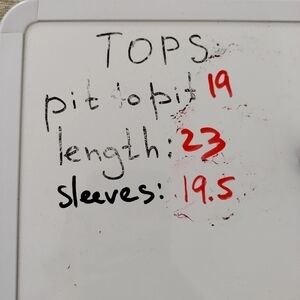 TOPS
pit to pit 19
length: 23
sleeves: 19.5